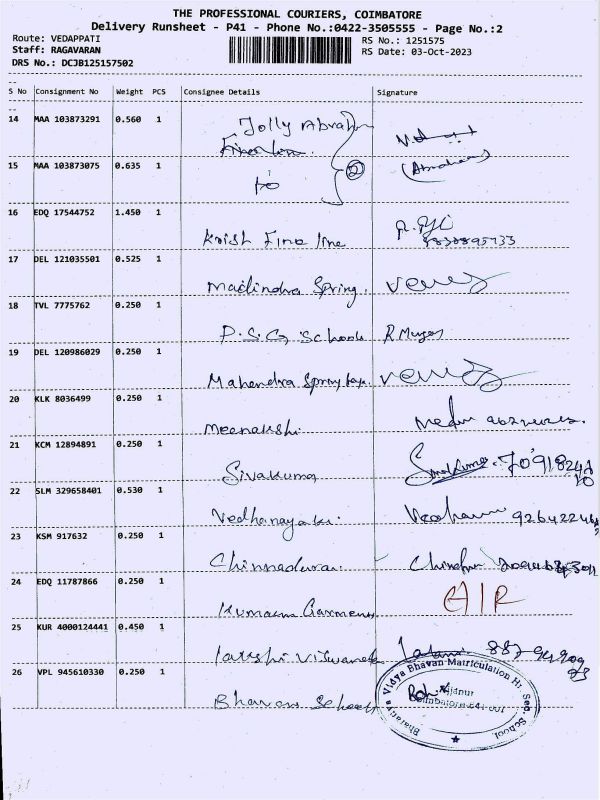 THE PROFESSIONAL COURIERS, COIMBATORE
Delivery Runsheet - P41 - Phone No.:0422-3505555 - Page No.:2
Route: VEDAPPATI
RS No.: 1251575
Staff: RAGAVARAN
RS Date: 03-Oct-2023
DRS No.: DCJB125157502
S No Consignment No Weight PCS Consignee Details Signature
14 MAA 103873291 0.560 1 Jolly Abraham
15 MAA 103873075 0.635 1 to (2) (Abraham)
16 EDQ 17544752 1.450 1 Krish Fine line
17 DEL 121035501 0.525 1 Mahindra Spring.
18 TVL 7775762 0.250 1 P.S.G School R Muges
19 DEL 120986029 0.250 1 Mahendra Spring
20 KLK 8036499 0.250 1 Meenakshi
21 KCM 12894891 0.250 1 Sivakumar
22 SLM 329658401 0.530 1 Vedhanayaki
23 KSM 917632 0.250 1 Chinnadurai
24 EDQ 11787866 0.250 1 Kumaran Garments
25 KUR 4000124441 0.450 1
26 VPL 945610330 0.250 1 Bhavans School
Bharatiya Vidya Bhavan Matriculation Hr. Sec. School
Ajjanur
Coimbatore-641 001